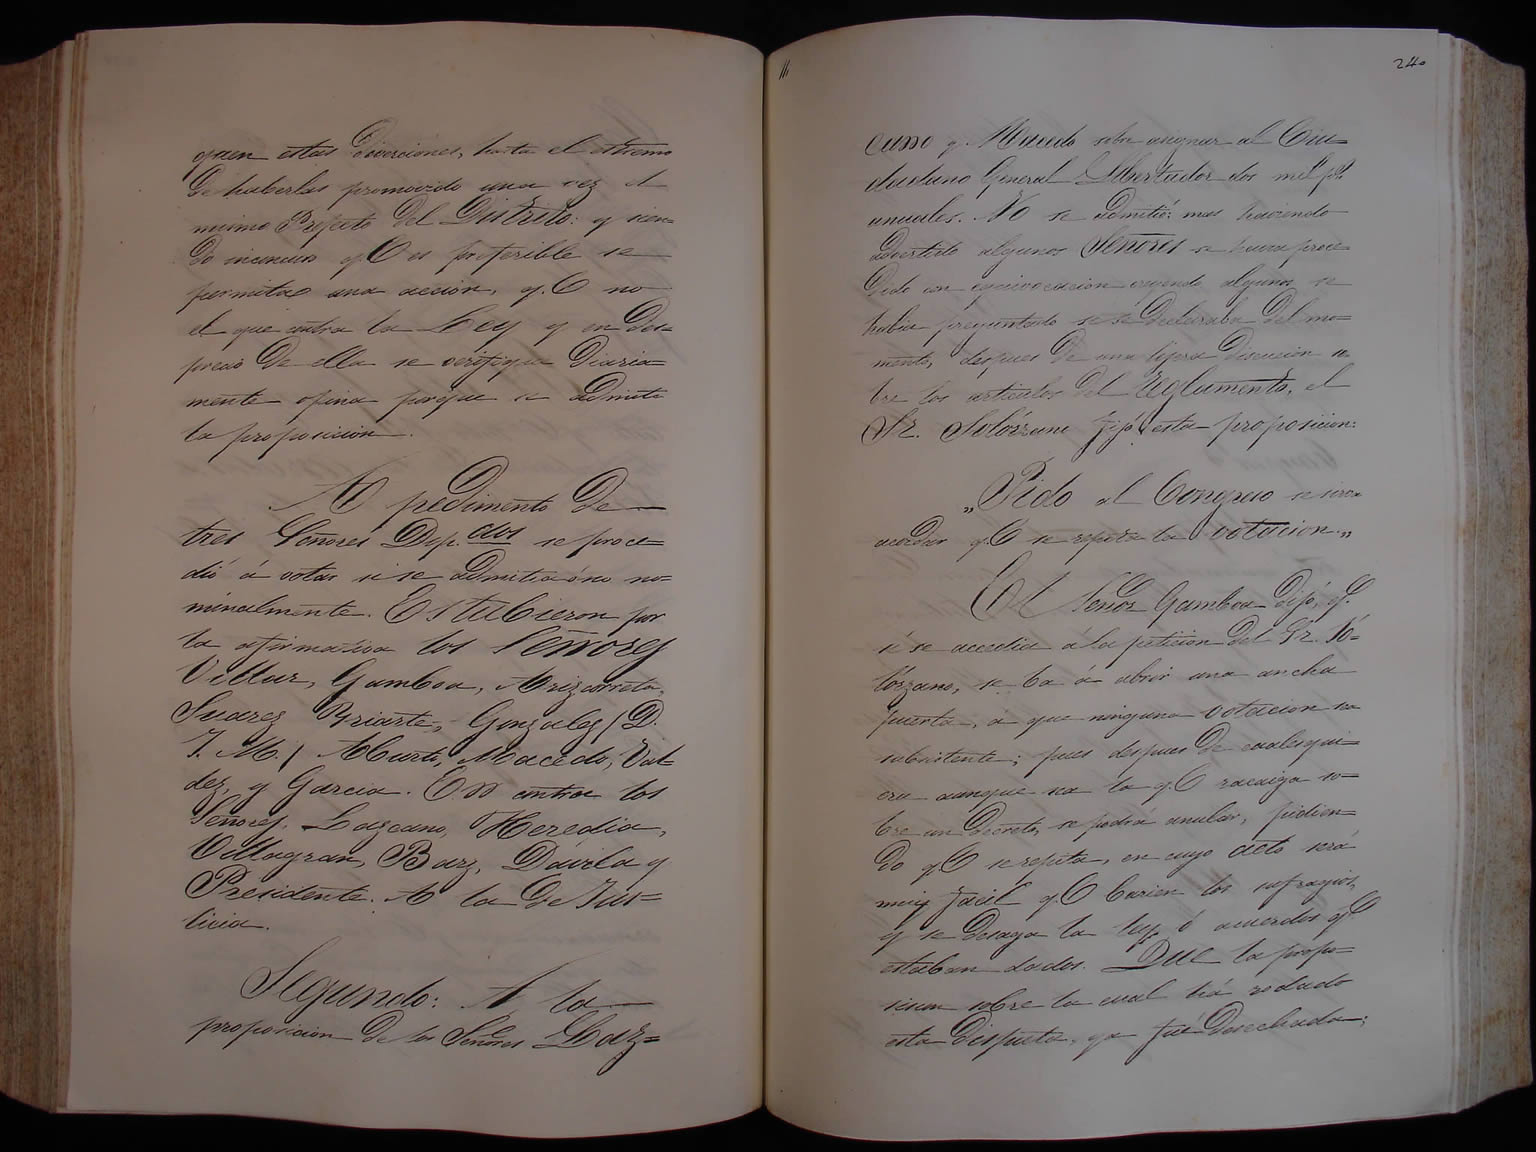 quen estas diverciones, hasta el estremo
de haberlas promovido una vez el
mismo Prefecto del Distrito: y sien=
do inconcuso q.e es preferible se
permita una acción, q.e no
el que contra la Ley y en des=
precio de ella se verifique diaria=
mente opina porque se admita
la proposición.
A pedimento de
tres Señores Dip.ados se proce=
dió á votar si se admitia ó no no=
minalmente. Estubieron por
la afirmativa los Señores
Villar, Gamboa, Arizcorreta,
Suarez Yriarte, Gonzalez (D.
J. M.) Aburto, Macedo, Val=
dez, y Garcia. En contra los
Señores, Lazcano, Heredia,
Villagran, Barz, Dávila y
Presidente. A la de Jus=
ticia.
Segundo: A la
proposicion de los Señores Laz=
240
cano y Macedo sobre asignar al Ciu=
dadano General Libertador dos mil p.s
anuales. No se admitió: mas haciendo
advertido algunos Señores se havia proce=
dido con equivocacion creyendo algunos se
habia preguntado si se declaraba del mo=
mento, despues de una lijera discucion so=
bre los articulos del Reglamento, el
Sr. Solórzano fijó esta proposicion:
„Pido al Congreso se sirva
acordar q.e se repita la votacion.„
El Señor Gamboa dijo, q.e
si se accedia á la peticion del Sr. So=
lorzano, se ba á abrir una ancha
puerta, á que ninguna votacion sea
subsistente; pues despues de cualesqui=
era aunque sea la q.e racaiga so=
bre un Decreto, se podrá anular, pidien=
do q.e se repita, en cuyo acto será
muy facil q.e barien los sufragios,
y se desaga la ley ó acuerdos q.e
estaban dados. Que la propo=
sicion sobre la cual há rodado
esta disputa, ya fué desechada;